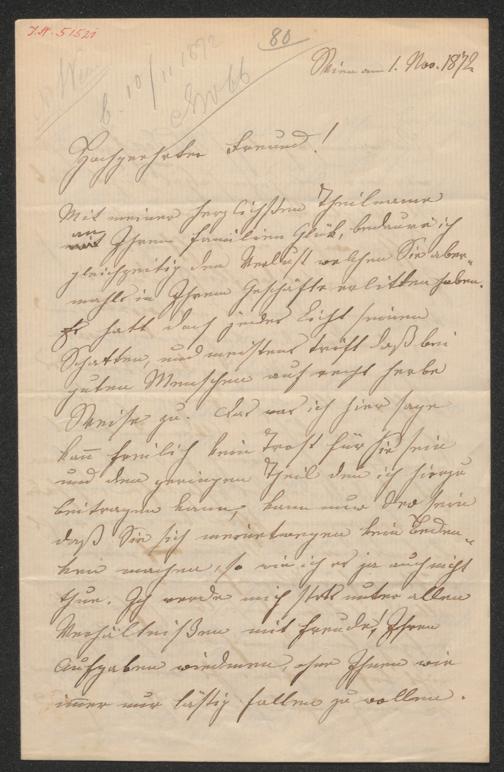 I.N. 51521
80
Wien
b. 10/11 1872
Wien am 1. Nov. 1872
Hochgeehrter Freund!
Mit meiner herzlichsten Theilname
an
Ihrem Familien Glük, bedaure ich
gleichzeitig den Verlust welchen Sie aber-
mahls in Ihrem Geschäfte erlitten haben.
Es hatt doch jedes Licht seinen
Schatten, und meistens trifft daß bei
guten Menschen auf recht herbe
Weise zu. Das was ich hier sage
kan freilich kein Trost für Sie sein
und den geringen Theil den ich hierzu
beitragen kann, kann nur der sein
daß Sie sich meinetwegen kein Beden-
ken machen, so wie ich es ja auch nicht
thue. Ich werde mich stets unter allen
Verhältnißen mit Freude Ihren
Aufgaben wiedmen, ohne Ihnen wie
immer nur lästig fallen zu wollen.